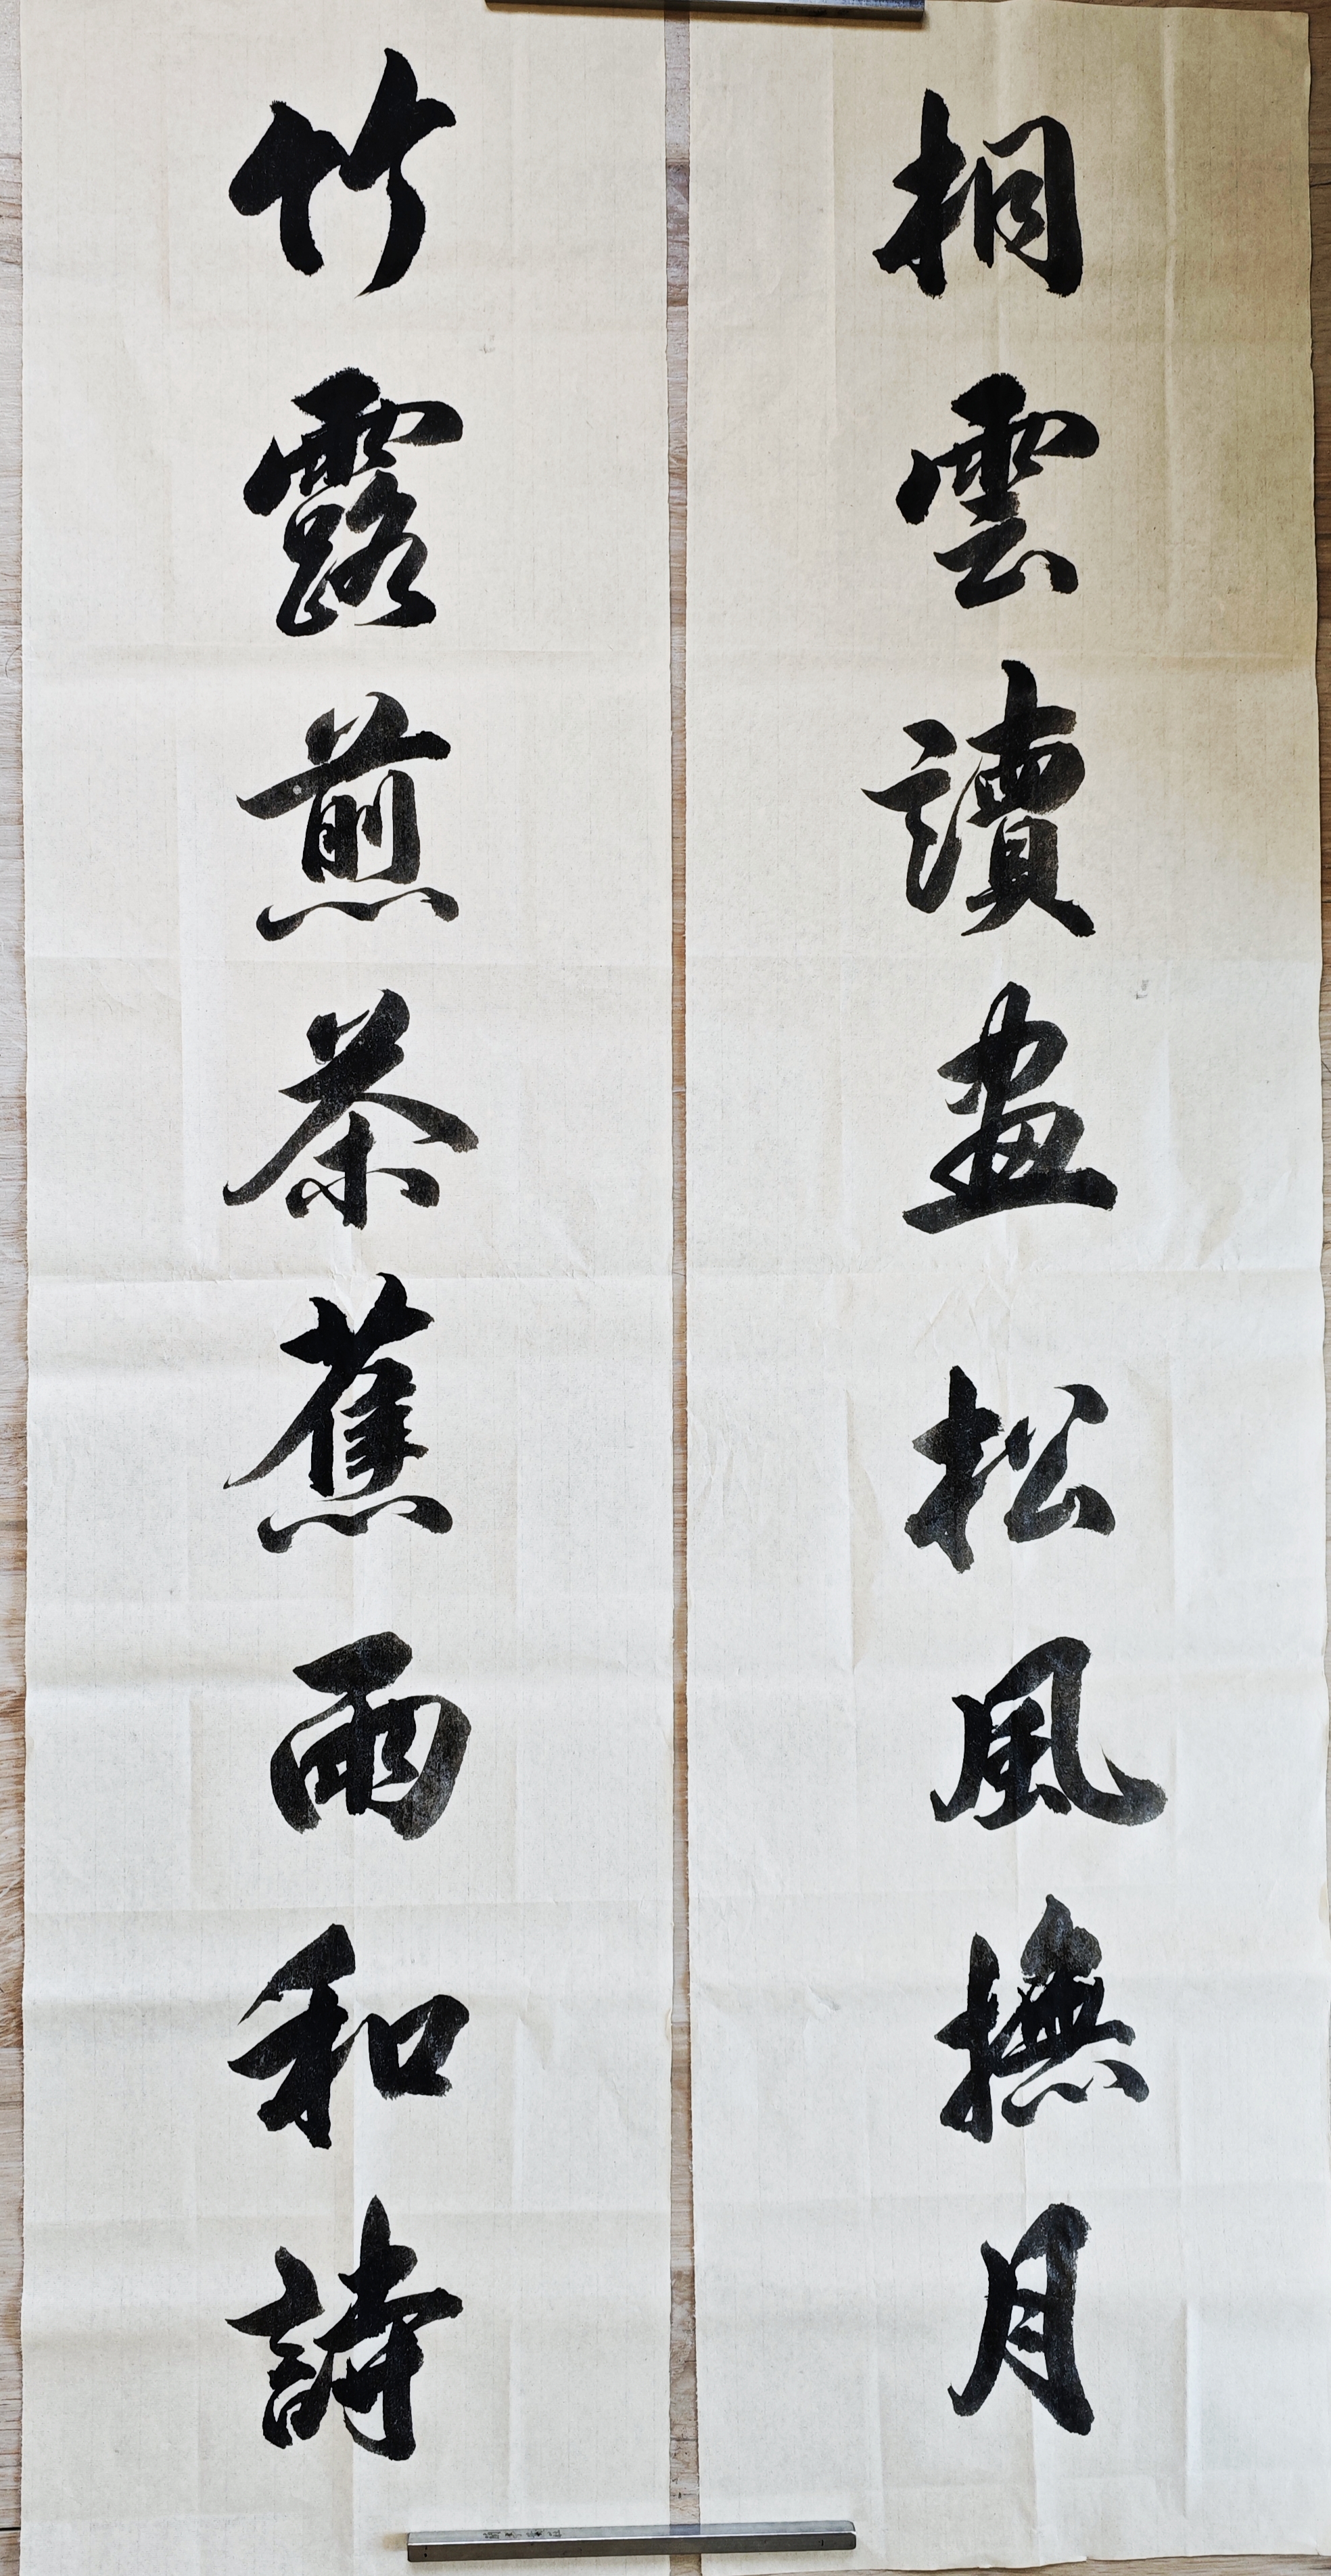 桐雲讀畫松風撫月
竹露煎茶蕉雨和詩